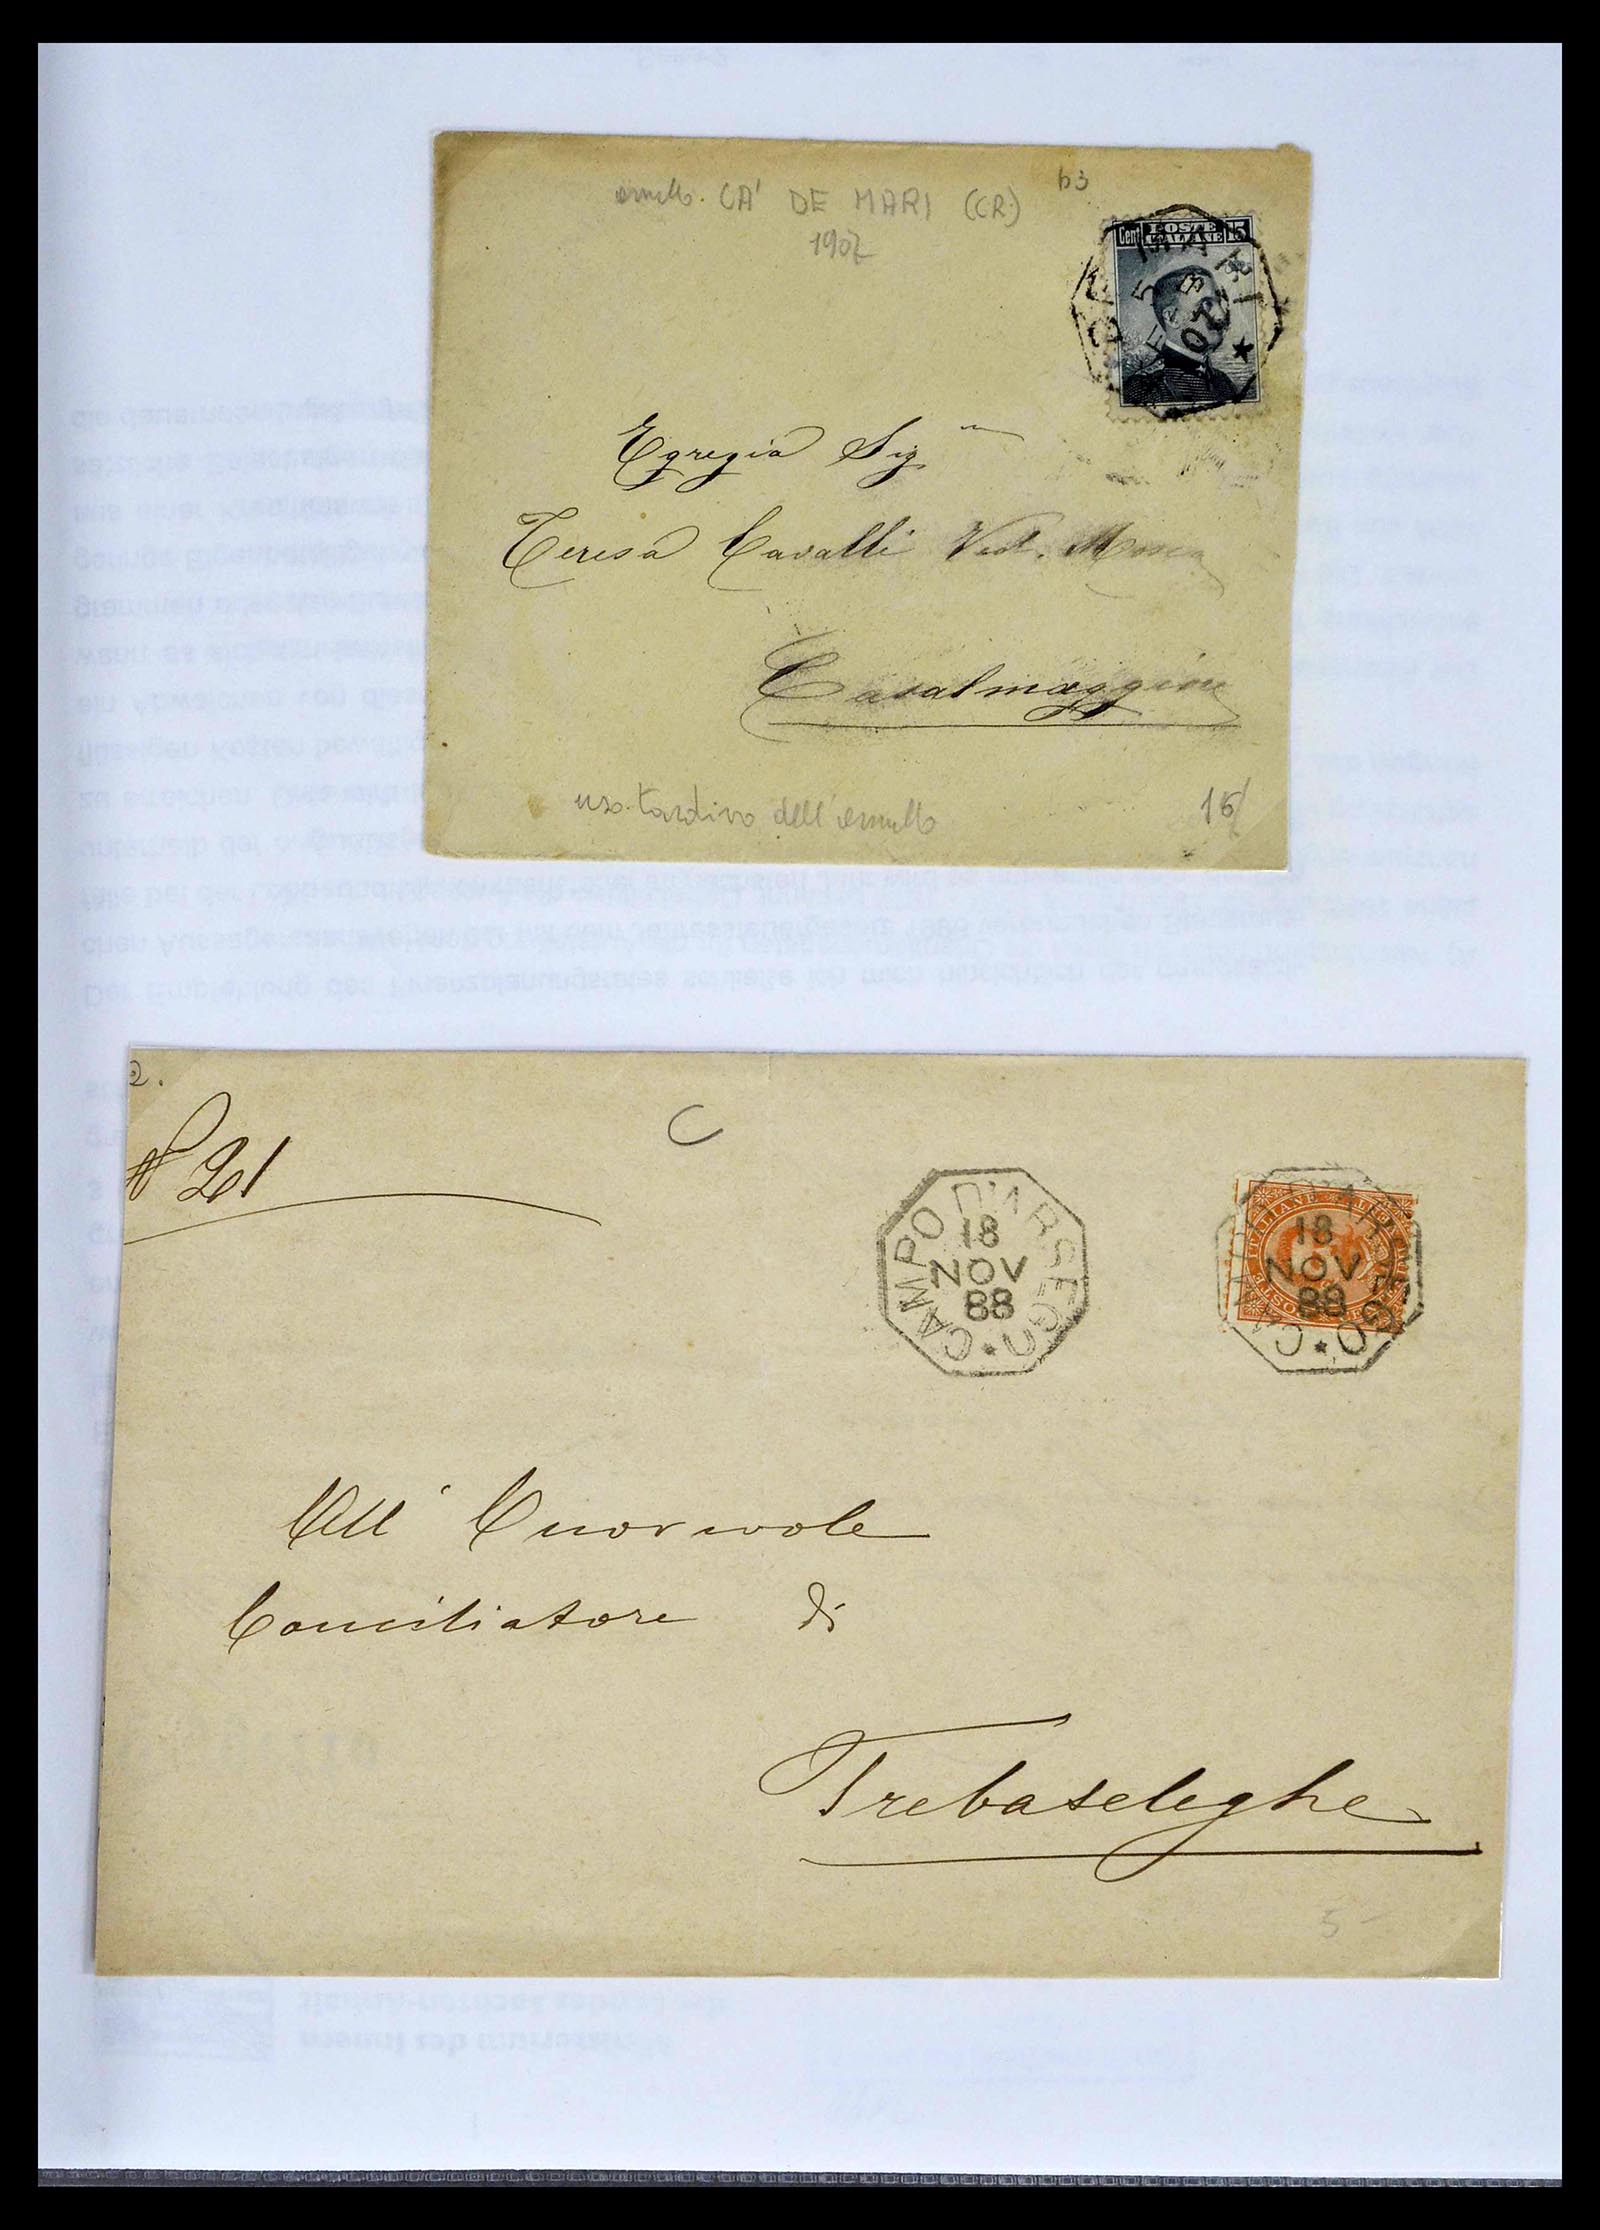 b3
CA' DE MARI (CR)
1907
Cent POSTE ITALIANE 15
Egregia Sig
Teresa Cavalli Ved. Mosca
Casalmaggiore
uso tardivo dell'
2.
N 21
C
CAMPO D'ARSEGO
18
NOV
88
CAMPO D'ARSEGO
18
NOV
88
All' Onorevole
Conciliatore di
Trebaseleghe
5-